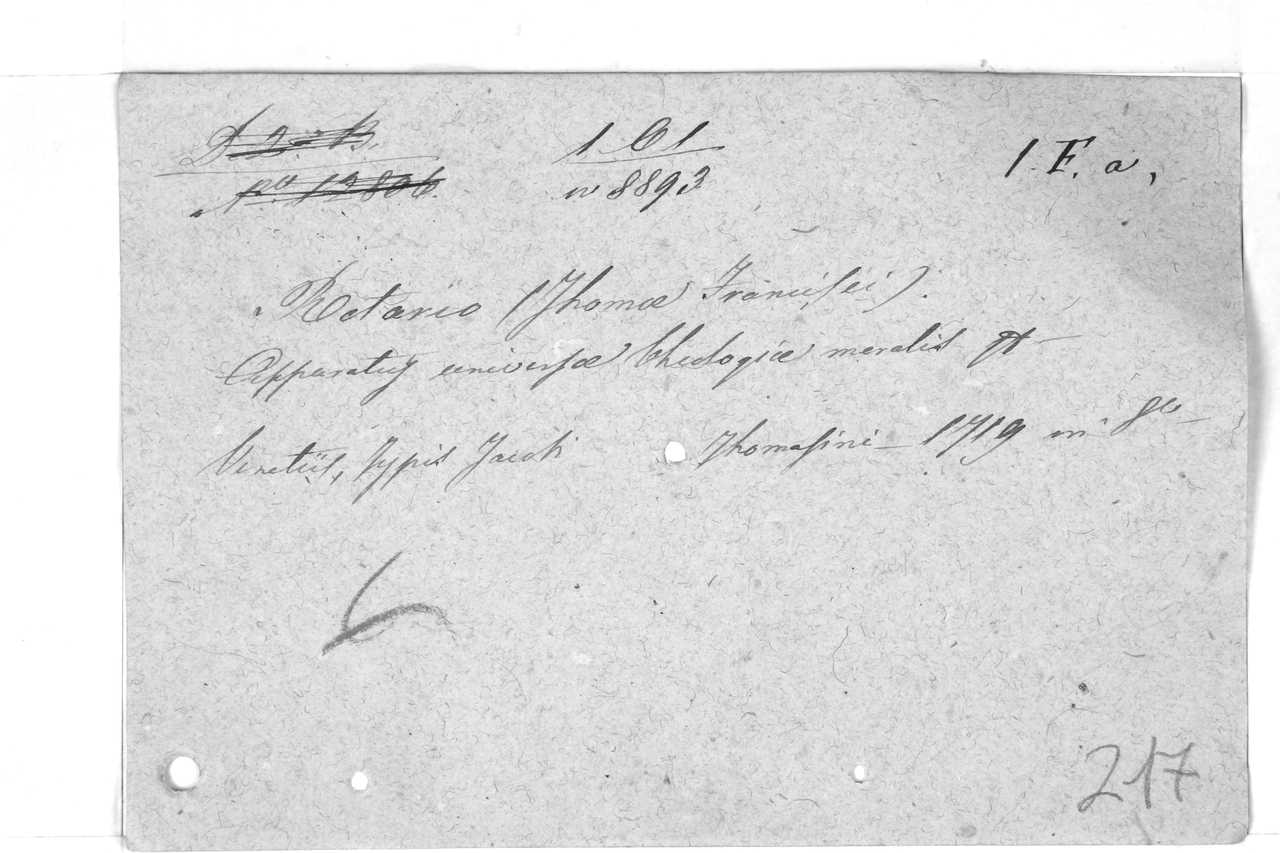 D 2. B. 1 C 1 1. F. a,
No. 12806. n 8893
Rotario (Thomæ Francisci).
Apparatus universæ theologiæ moralis &
Venetiis, Typis Jacobi Thomasini 1719 in 8o
217